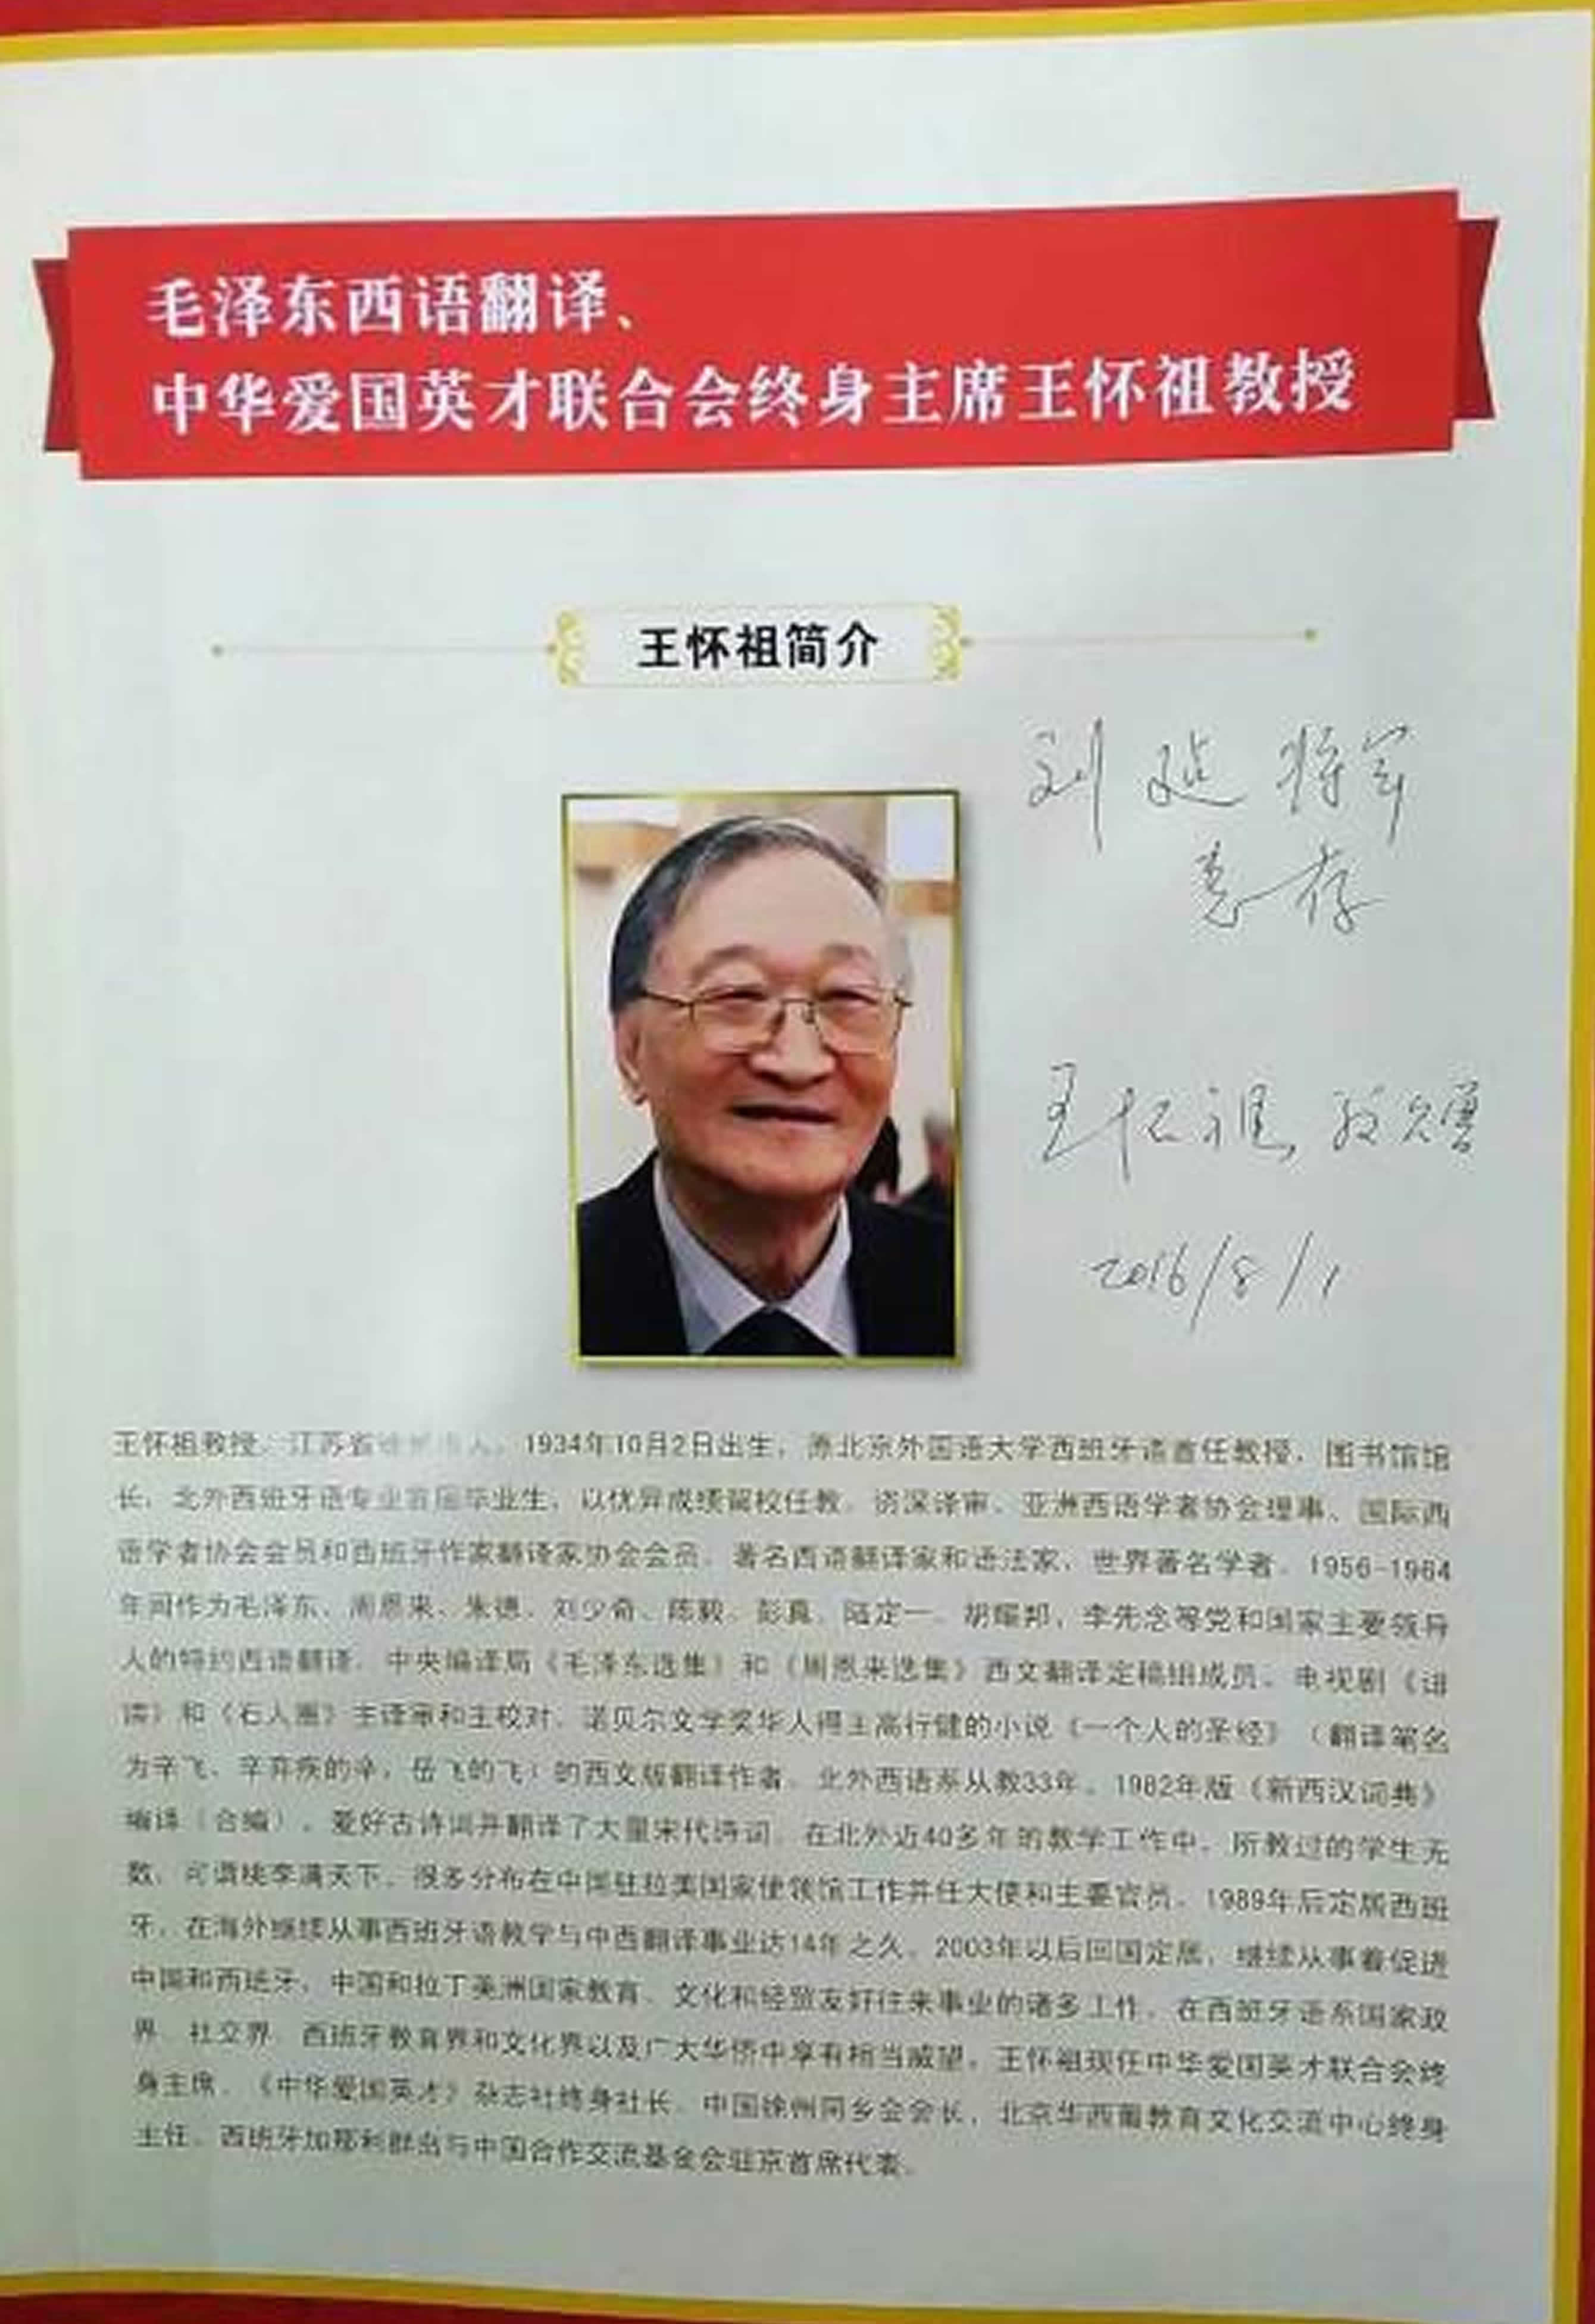 毛泽东西语翻译、
中华爱国英才联合会终身主席王怀祖教授
王怀祖简介
刘 延 将军
惠存
王怀祖 敬赠
2016/8/1
王怀祖教授，江苏省 人，1934年10月2日出生，原北京外国语大学西班牙语首任教授，图书馆馆
长，北外西班牙语专业首届毕业生，以优异成绩留校任教。资深译审、亚洲西语学者协会理事、国际西
语学者协会会员和西班牙作家翻译家协会会员。著名西语翻译家和语法家，世界著名学者。1956-1964
年间作为毛泽东、周恩来、朱德、刘少奇、陈毅、彭真、陆定一、胡耀邦，李先念等党和国家主要领导
人的特约西语翻译。中央编译局《毛泽东选集》和《周恩来选集》西文翻译定稿组成员。电视剧《
》和《石人圈》主译审和主校对，诺贝尔文学奖华人得主高行健的小说《一个人的圣经》（翻译笔名
为辛飞，辛弃疾的辛，岳飞的飞）的西文版翻译作者。北外西语系从教33年。1982年版《新西汉词典》
编译（合编）。爱好古诗词并翻译了大量宋代诗词。在北外近40多年的教学工作中，所教过的学生无
数，可谓桃李满天下，很多分布在中国驻拉美国家使领馆工作并任大使和主要官员。1989年后定居西班
牙，在海外继续从事西班牙语教学与中西翻译事业达14年之久。2003年以后回国定居，继续从事着促进
中国和西班牙，中国和拉丁美洲国家教育、文化和经贸友好往来事业的诸多工作。在西班牙语系国家政
界、社交界、西班牙教育界和文化界以及广大华侨中享有相当威望。王怀祖现任中华爱国英才联合会终
身主席、《中华爱国英才》杂志社终身社长、中国徐州同乡会会长，北京华西葡教育文化交流中心终身
主任、西班牙加那利群岛与中国合作交流基金会驻京首席代表。